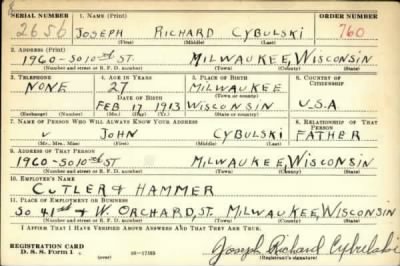 SERIAL NUMBER 1. NAME (Print) ORDER NUMBER
2656 JOSEPH RICHARD CYBULSKI 760
(First) (Middle) (Last)
2. ADDRESS (Print)
1960-SO 10TH ST. MILWAUKEE, WISCONSIN
(Number and street or R. F. D. number) (Town) (County) (State)
3. TELEPHONE 4. AGE IN YEARS 5. PLACE OF BIRTH 6. COUNTRY OF CITIZENSHIP
NONE 27 MILWAUKEE
DATE OF BIRTH (Town or county)
FEB 17 1913 WISCONSIN U.S.A
(Exchange) (Number) (Mo.) (Day) (Yr.) (State or country)
7. NAME OF PERSON WHO WILL ALWAYS KNOW YOUR ADDRESS 8. RELATIONSHIP OF THAT PERSON
JOHN CYBULSKI FATHER
(Mr., Mrs., Miss) (First) (Middle) (Last)
9. ADDRESS OF THAT PERSON
1960-SO 10TH ST MILWAUKEE, WISCONSIN
(Number and street or R. F. D. number) (Town) (County) (State)
10. EMPLOYER'S NAME
CUTLER & HAMMER
11. PLACE OF EMPLOYMENT OR BUSINESS
SO 41ST & W. ORCHARD, ST. MILWAUKEE, WISCONSIN
(Number and street or R. F. D. number) (Town) (County) (State)
I AFFIRM THAT I HAVE VERIFIED ABOVE ANSWERS AND THAT THEY ARE TRUE.
REGISTRATION CARD
D. S. S. Form 1 16-17105 Joseph Richard Cybulski
(Registrant's signature)